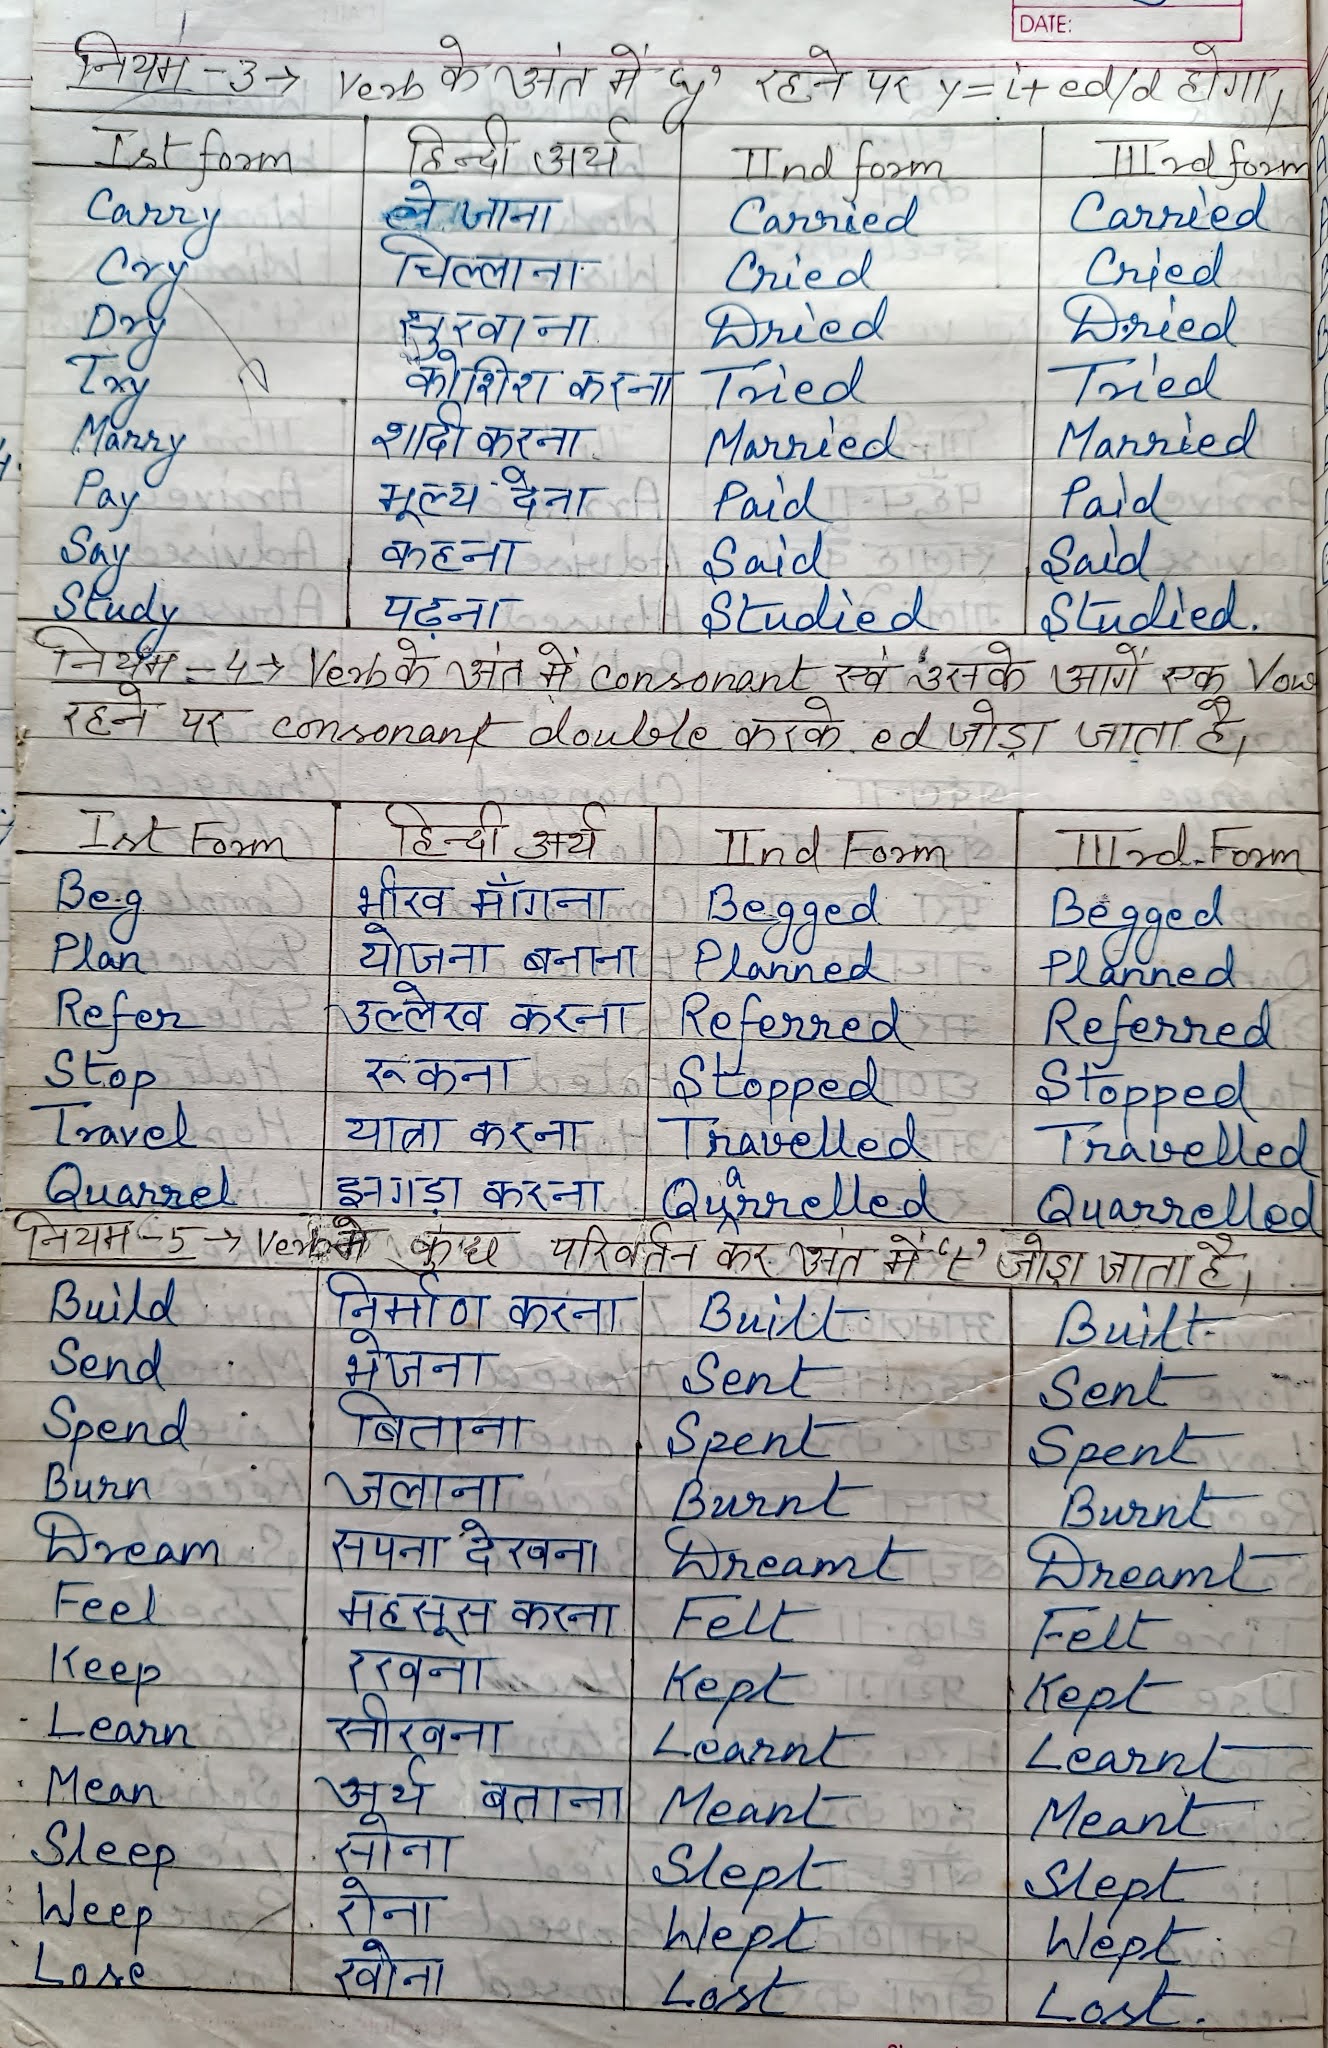 DATE:
नियम -3 → Verb के अंत में 'y' रहने पर y=i+ed/d होगा।
Ist form हिन्दी अर्थ IInd form IIIrd form
Carry ले जाना Carried Carried
Cry चिल्लाना Cried Cried
Dry सुखाना Dried Dried
Try कोशिश करना Tried Tried
Marry शादी करना Married Married
Pay मूल्य देना Paid Paid
Say कहना Said Said
Study पढ़ना Studied Studied.
नियम -4 → Verb के अंत में consonant एवं उसके आगें एक Vow
रहने पर consonant double करके ed जोड़ा जाता है।
Ist Form हिन्दी अर्थ IInd Form IIIrd Form
Beg भीख माँगना Begged Begged
Plan योजना बनाना Planned Planned
Refer उल्लेख करना Referred Referred
Stop रूकना Stopped Stopped
Travel यात्रा करना Travelled Travelled
Quarrel झगड़ा करना Quarrelled Quarrelled
नियम -5 → Verb में कुछ परिवर्तन कर अंत में 't' जोड़ा जाता है।
Build निर्माण करना Built Built
Send भेजना Sent Sent
Spend बिताना Spent Spent
Burn जलाना Burnt Burnt
Dream सपना देखना Dreamt Dreamt
Feel महसूस करना Felt Felt
Keep रखना Kept Kept
Learn सीखना Learnt Learnt
Mean अर्थ बताना Meant Meant
Sleep सोना Slept Slept
Weep रोना Wept Wept
Lose खोना Lost Lost.